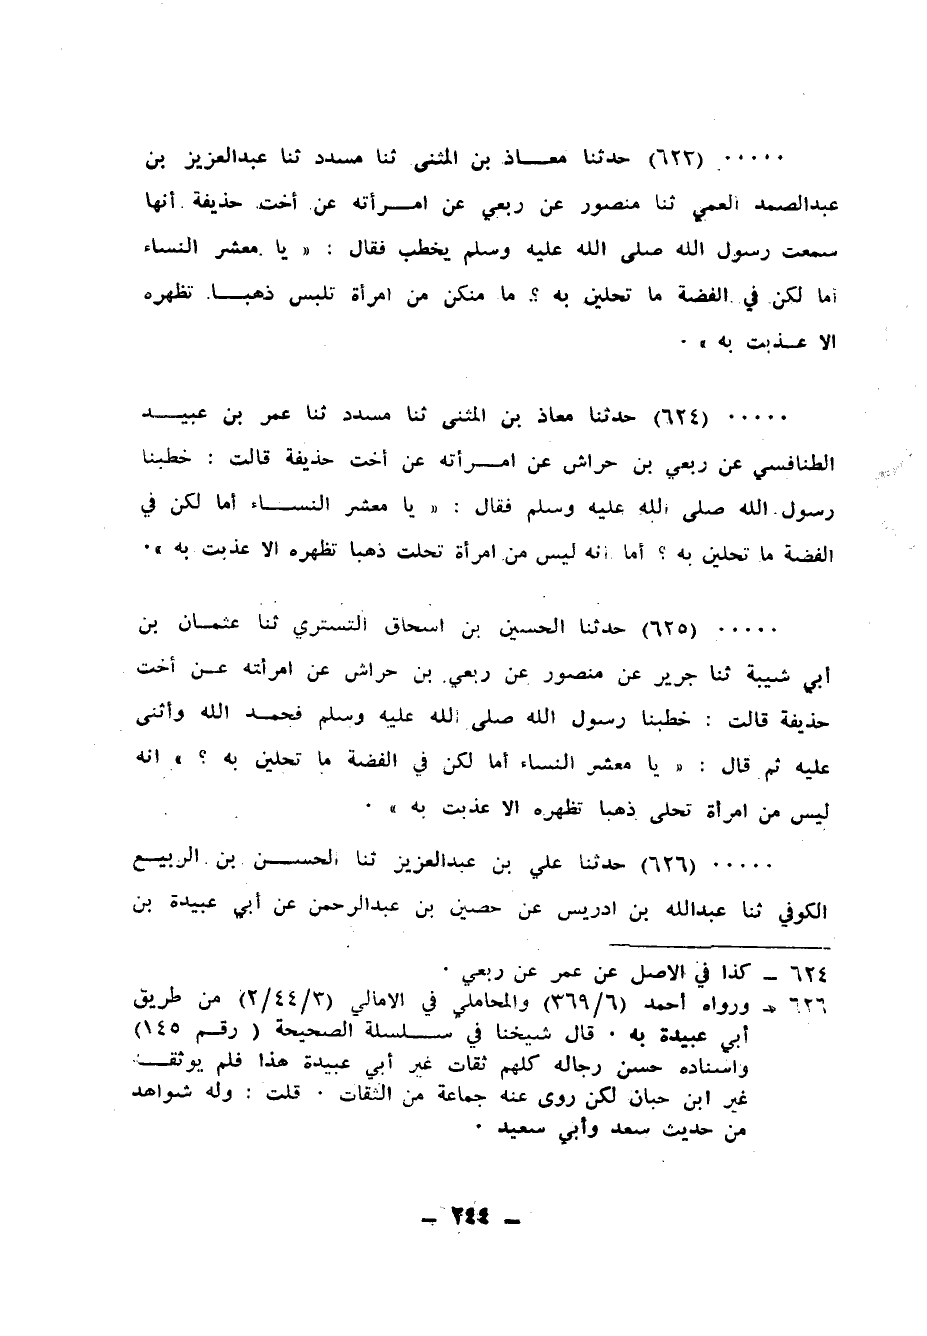 ٠٠٠٠٠ (٦٢٣) حدثنا معـــاذ بن المثنى ثنا مسدد ثنا عبدالعزيز بن
عبدالصمد العمي ثنا منصور عن ربعي عن امـــرأته عن أخت حذيفة أنها
سمعت رسول الله صلى الله عليه وسلم يخطب فقال : « يا معشر النساء
أما لكن في الفضة ما تحلين به ؟ ما منكن من امرأة تلبس ذهبـــا تظهره
الا عـــذبت به » ٠
٠٠٠٠٠ (٦٢٤) حدثنا معاذ بن المثنى ثنا مسدد ثنا عمر بن عبيـــد
الطنافسي عن ربعي بن حراش عن امـــرأته عن أخت حذيفة قالت : خطبنا
رسول الله صلى الله عليه وسلم فقال : « يا معشر النســـاء أما لكن في
الفضة ما تحلين به ؟ أما انه ليس من امرأة تحلت ذهبا تظهره الا عذبت به »٠
٠٠٠٠٠ (٦٢٥) حدثنا الحسين بن اسحاق التستري ثنا عثمـــان بن
أبي شيبة ثنا جرير عن منصور عن ربعي بن حراش عن امرأته عـــن أخت
حذيفة قالت : خطبنا رسول الله صلى الله عليه وسلم فحمـــد الله وأثنى
عليه ثم قال : « يا معشر النساء أما لكن في الفضة ما تحلين به ؟ » انه
ليس من امرأة تحلى ذهبا تظهره الا عذبت به » ٠
٠٠٠٠٠ (٦٢٦) حدثنا علي بن عبدالعزيز ثنا الحســـن بن الربيـــع
الكوفي ثنا عبدالله بن ادريس عن حصين بن عبدالرحمن عن أبي عبيدة بن
٦٢٤ ــ كذا في الاصل عن عمر عن ربعي ٠
٦٢٦ ــ ورواه أحمد (٣٦٩/٦) والمحاملي في الامالي (٢/٤٤/٣) من طريق
أبي عبيدة به ٠ قال شيخنا في ســـلسلة الصحيحة ( رقـم ١٤٥)
واسناده حسن رجاله كلهم ثقات غير أبي عبيدة هذا فلم يوثقـــه
غير ابن حبان لكن روى عنه جماعة من الثقات ٠ قلت : وله شواهد
من حديث سعد وأبي سعيد ٠
ــ ٢٤٤ ــ